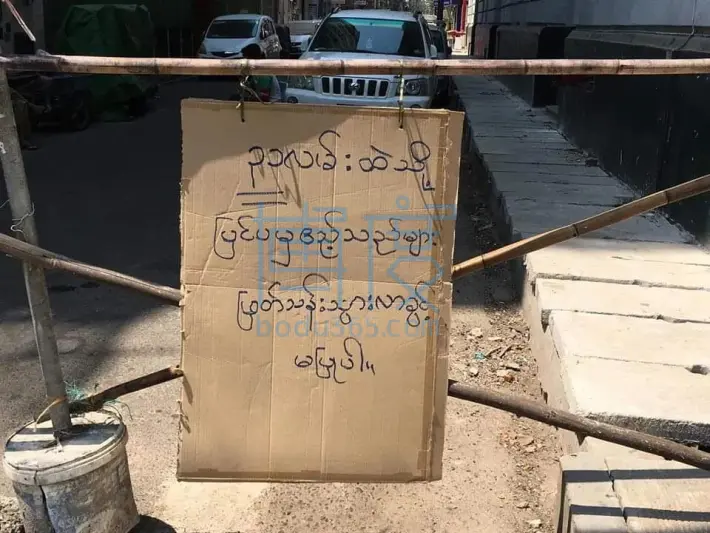 ၃၁လမ်းထဲသို့
ပြင်ပမှဧည့်သည်များ
ဖြတ်သန်းသွားလာခွင့်
မပြုပါ။
bodu365.com